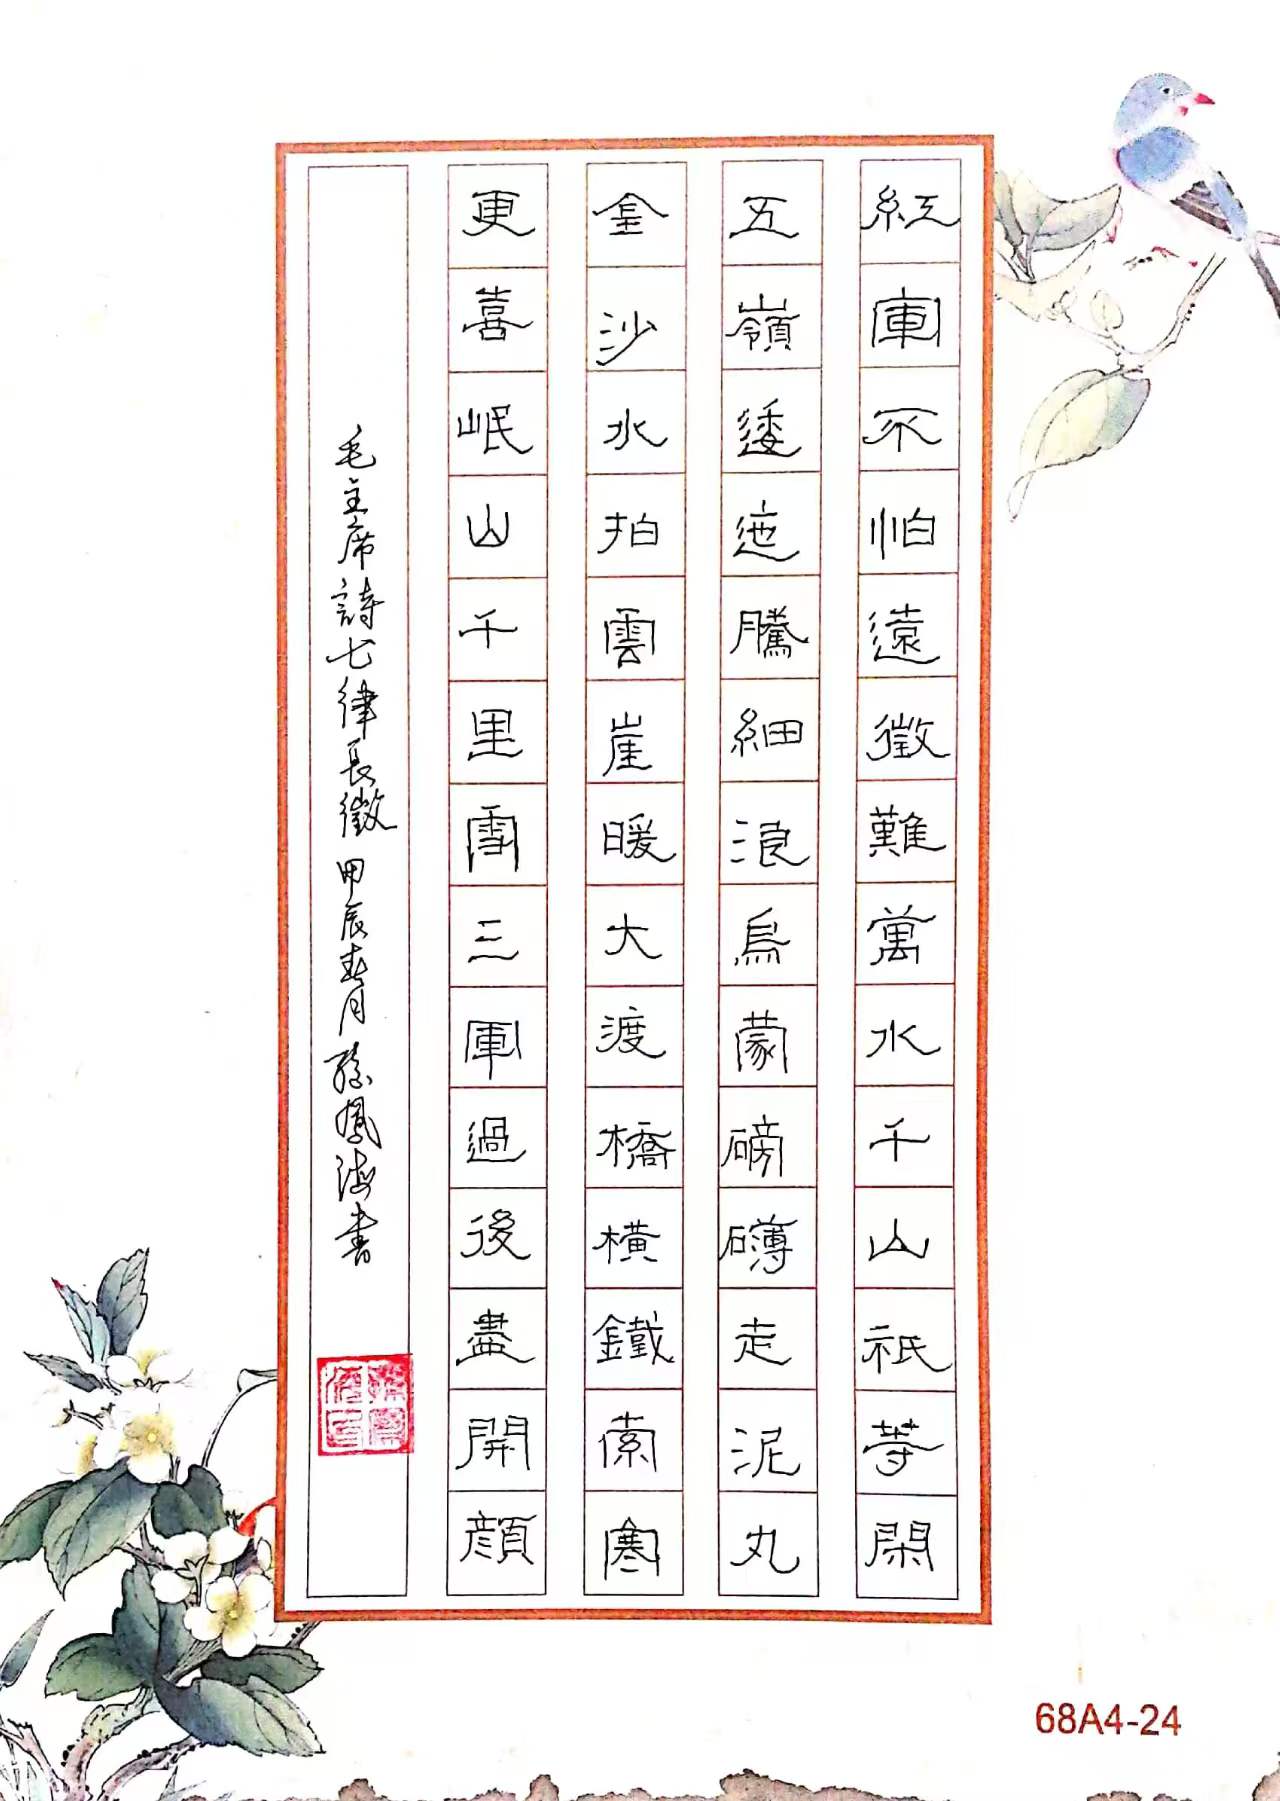 紅軍不怕遠徵難萬水千山祇等閑
五嶺逶迤騰細浪烏蒙磅礴走泥丸
金沙水拍雲崖暖大渡橋橫鐵索寒
更喜岷山千里雪三軍過後盡開顏
毛主席詩七律長徵甲辰春月孫鳳海書
68A4-24